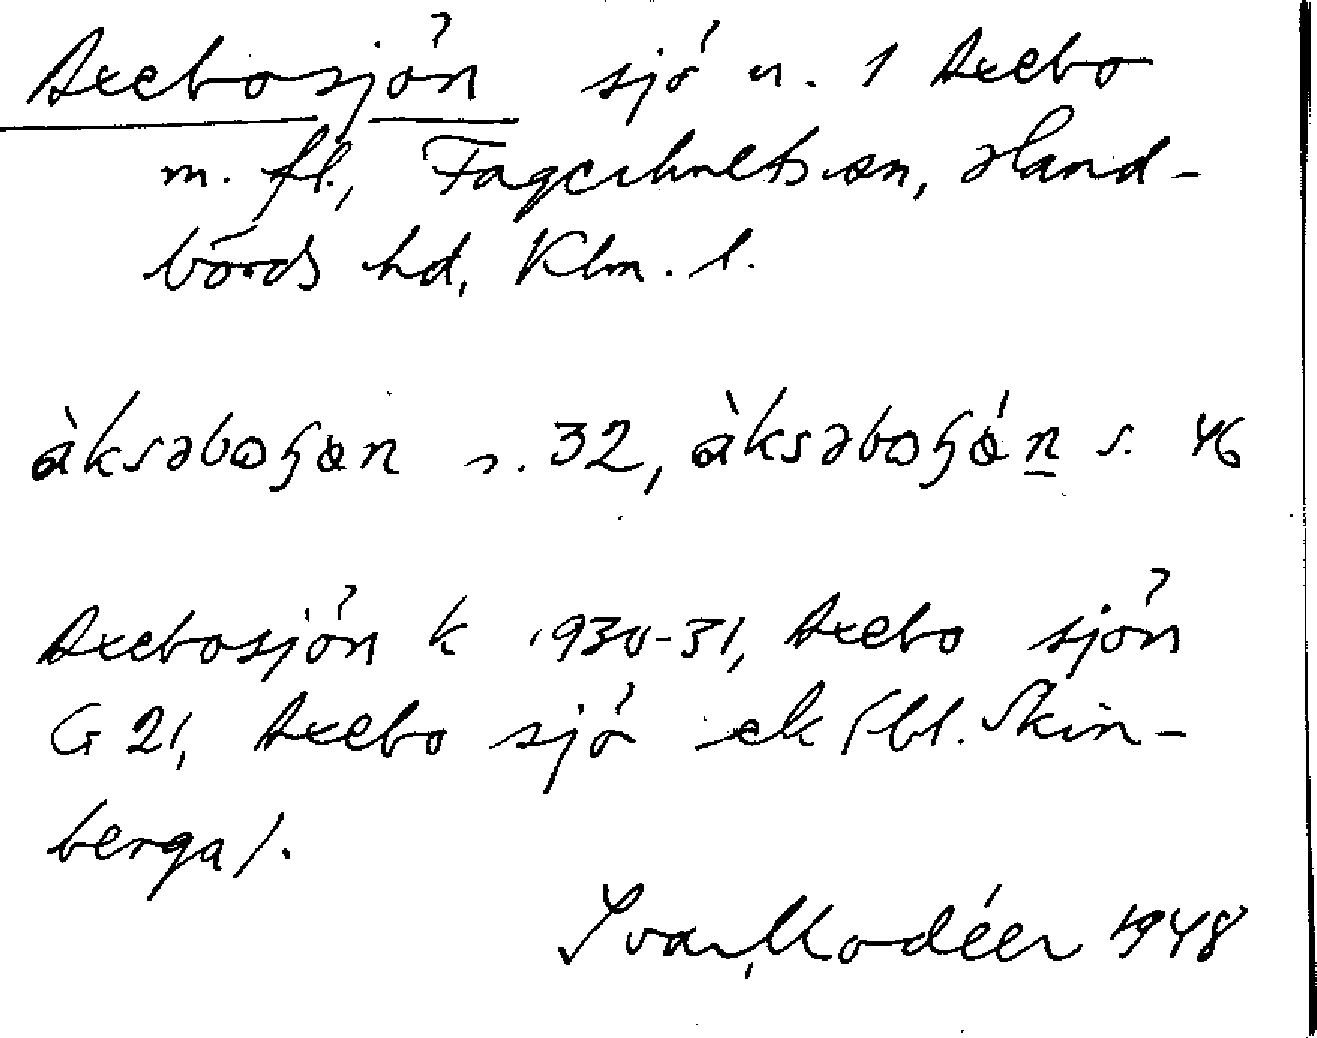 Axebosjön sjö u. 1 Axebo
m. fl., Fagerhults sn, Hand-
börds hd, Klm. l.
àksəboɧøn s. 32, àksəboɧǿn s. 46
Axebosjön k 1930-31, Axebo sjön
G 21, Axebo sjö ek (bl. Skin-
berga).
Ivar Modéer 1948